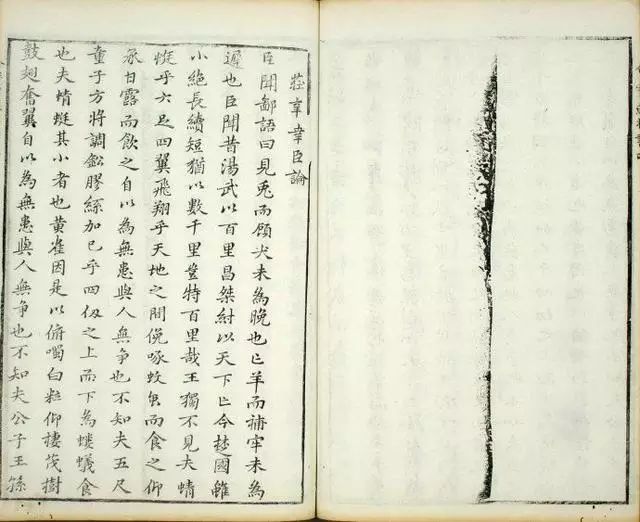 莊辛幸臣論
臣聞鄙語曰見兎而顧犬未為晚也亡羊而補牢未為
遲也臣聞昔湯武以百里昌桀紂以天下亡今楚國雖
小絕長續短猶以數千里豈特百里哉王獨不見夫蜻
蜓乎六足四翼飛翔乎天地之間俛啄蚊䖟而食之仰
承甘露而飲之自以為無患與人無爭也不知夫五尺
童子方將調鈆膠絲加已乎四仭之上而下為螻蟻食
也夫蜻蜓其小者也黃雀因是以俯噣白粒仰棲茂樹
鼓翅奮翼自以為無患與人無爭也不知夫公子王孫